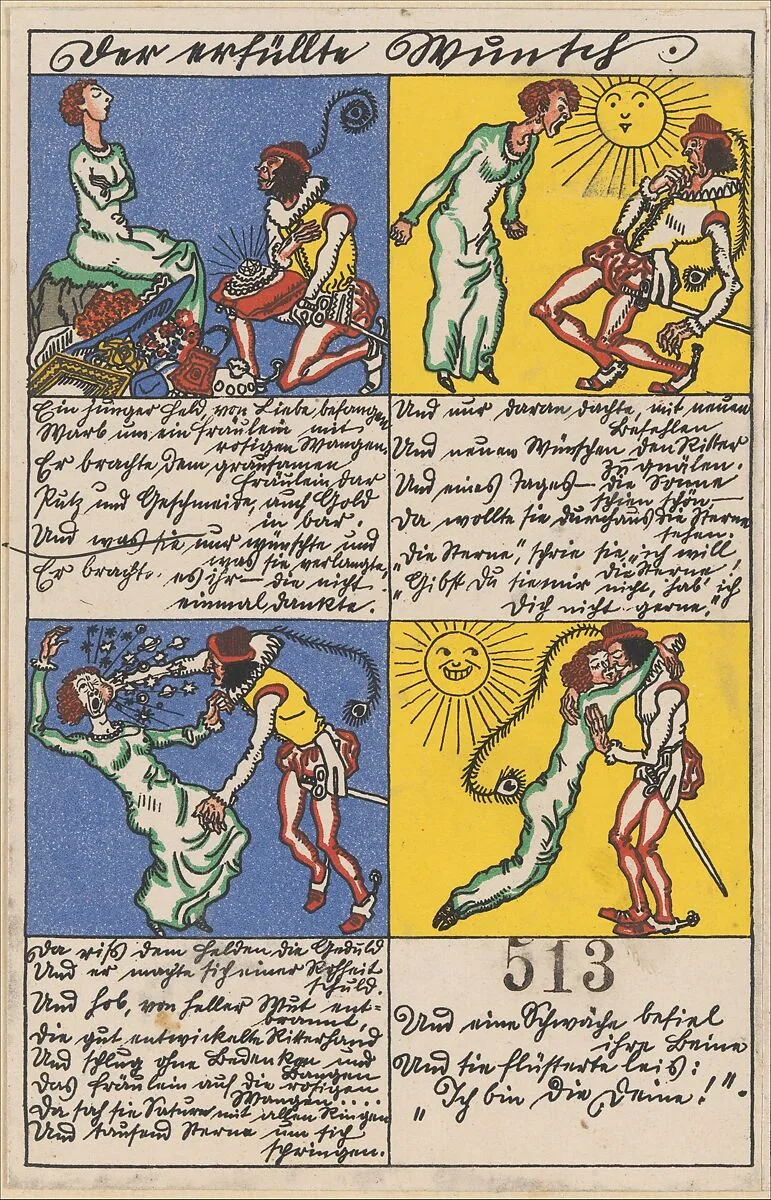 Der erfüllte Wunsch.
Ein junger Held, von Liebe befangen
Warb um ein Fräulein mit
rosigen Wangen.
Er brachte dem grausamen
Fräulein dar
Putz und Geschmeide, auch Gold
in bar.
Und was sie nur wünschte und
was sie verlangte,
Er brachte es ihr – die nicht
einmal dankte.
Und nur daran dachte, mit neuen
Befehlen
Und neuen Wünschen den Ritter
zu quälen.
Und eines Tages – die Sonne
schien schön –
Da wollte sie durchaus die Sterne
sehen.
„Die Sterne“, schrie sie, „ich will
die Sterne!
„Gibst Du sie mir nicht, hab' ich
Dich nicht gerne.“
Da riss dem Helden die Geduld
Und er machte sich einer Roheit
schuld.
Und hob, von heller Wut ent=
brannt,
Die gut entwickelte Ritterhand
Und schlug ohne Bedenken und
Bangen
Das Fräulein auf die rosigen
Wangen....
Da sah sie Saturn mit allen Ringen
Und tausend Sterne um sich
springen.
513
Und eine Schwäche befiel
ihre Beine
Und sie flüsterte leis:
„Ich bin die Deine!“.